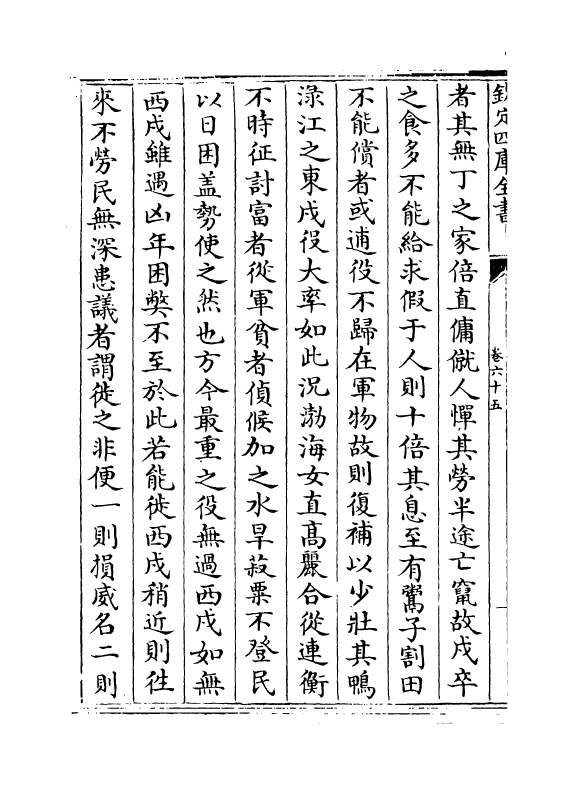 欽定四庫全書
卷六十五
者其無丁之家倍直傭僦人憚其勞半途亡竄故戍卒
之食多不能給求假于人則十倍其息至有鬻子割田
不能償者或逋役不歸在軍物故則復補以少壯其鴨
淥江之東戍役大率如此況渤海女直高麗合從連衡
不時征討富者從軍貧者偵候加之水旱菽粟不登民
以日困蓋勢使之然也方今最重之役無過西戍如無
西戍雖遇凶年困弊不至於此若能徙西戍稍近則往
來不勞民無深患議者謂徙之非便一則損威名二則